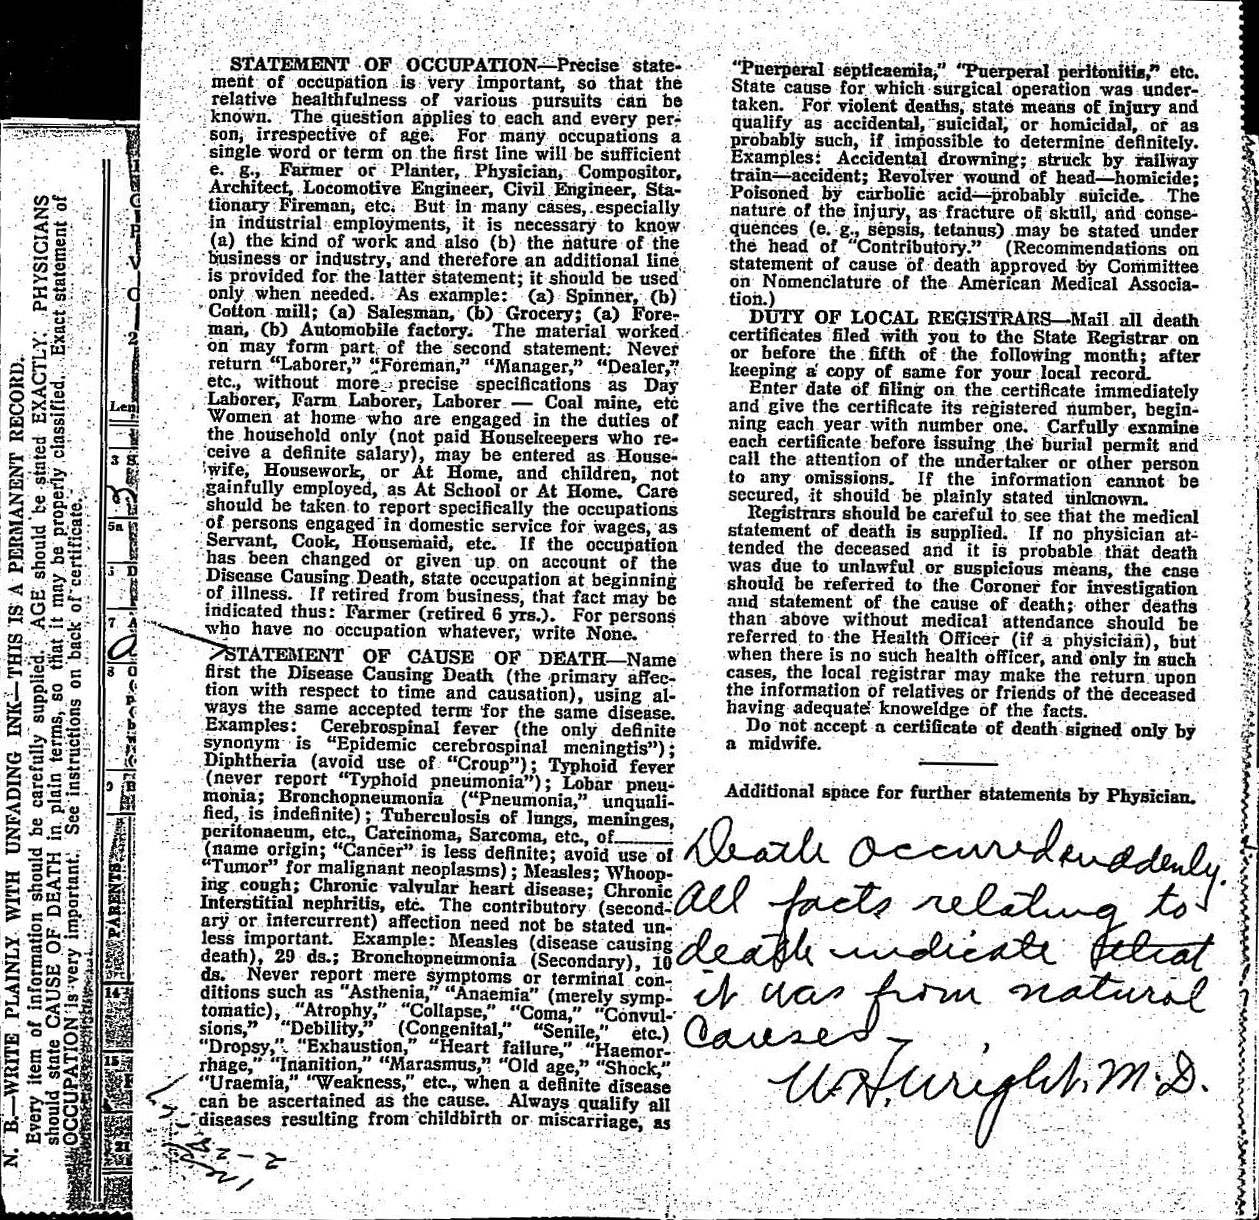 N. B.—WRITE PLAINLY, WITH UNFADING INK—THIS IS A PERMANENT RECORD.
Every item of information should be carefully supplied. AGE should be stated EXACTLY. PHYSICIANS
should state CAUSE OF DEATH in plain terms, so that it may be properly classified. Exact statement of
OCCUPATION is very important. See instructions on back of certificate.
Len
3
5a
7
8
9
PARENTS
14
15
21
STATEMENT OF OCCUPATION—Precise state-
ment of occupation is very important, so that the
relative healthfulness of various pursuits can be
known. The question applies to each and every per-
son, irrespective of age. For many occupations a
single word or term on the first line will be sufficient
e. g., Farmer or Planter, Physician, Compositor,
Architect, Locomotive Engineer, Civil Engineer, Sta-
tionary Fireman, etc. But in many cases, especially
in industrial employments, it is necessary to know
(a) the kind of work and also (b) the nature of the
business or industry, and therefore an additional line
is provided for the latter statement; it should be used
only when needed. As example: (a) Spinner, (b)
Cotton mill; (a) Salesman, (b) Grocery; (a) Fore-
man, (b) Automobile factory. The material worked
on may form part of the second statement. Never
return "Laborer," "Foreman," "Manager," "Dealer,"
etc., without more precise specifications as Day
Laborer, Farm Laborer, Laborer — Coal mine, etc
Women at home who are engaged in the duties of
the household only (not paid Housekeepers who re-
ceive a definite salary), may be entered as House-
wife, Housework, or At Home, and children, not
gainfully employed, as At School or At Home. Care
should be taken to report specifically the occupations
of persons engaged in domestic service for wages, as
Servant, Cook, Housemaid, etc. If the occupation
has been changed or given up on account of the
Disease Causing Death, state occupation at beginning
of illness. If retired from business, that fact may be
indicated thus: Farmer (retired 6 yrs.). For persons
who have no occupation whatever, write None.
STATEMENT OF CAUSE OF DEATH—Name
first the Disease Causing Death (the primary affec-
tion with respect to time and causation), using al-
ways the same accepted term for the same disease.
Examples: Cerebrospinal fever (the only definite
synonym is "Epidemic cerebrospinal meningtis");
Diphtheria (avoid use of "Croup"); Typhoid fever
(never report "Typhoid pneumonia"); Lobar pneu-
monia; Bronchopneumonia ("Pneumonia," unquali-
fied, is indefinite); Tuberculosis of lungs, meninges,
peritonaeum, etc., Carcinoma, Sarcoma, etc., of______
(name origin; "Cancer" is less definite; avoid use of
"Tumor" for malignant neoplasms); Measles; Whoop-
ing cough; Chronic valvular heart disease; Chronic
Interstitial nephritis, etc. The contributory (second-
ary or intercurrent) affection need not be stated un-
less important. Example: Measles (disease causing
death), 29 ds.; Bronchopneumonia (Secondary), 10
ds. Never report mere symptoms or terminal con-
ditions such as "Asthenia," "Anaemia" (merely symp-
tomatic), "Atrophy," "Collapse," "Coma," "Convul-
sions," "Debility," (Congenital," "Senile," etc.)
"Dropsy," "Exhaustion," "Heart failure," "Haemor-
rhage," "Inanition," "Marasmus," "Old age," "Shock,"
"Uraemia," "Weakness," etc., when a definite disease
can be ascertained as the cause. Always qualify all
diseases resulting from childbirth or miscarriage, as
"Puerperal septicaemia," "Puerperal peritonitis," etc.
State cause for which surgical operation was under-
taken. For violent deaths, state means of injury and
qualify as accidental, suicidal, or homicidal, or as
probably such, if impossible to determine definitely.
Examples: Accidental drowning; struck by railway
train—accident; Revolver wound of head—homicide;
Poisoned by carbolic acid—probably suicide. The
nature of the injury, as fracture of skull, and conse-
quences (e. g., sepsis, tetanus) may be stated under
the head of "Contributory." (Recommendations on
statement of cause of death approved by Committee
on Nomenclature of the American Medical Associa-
tion.)
DUTY OF LOCAL REGISTRARS—Mail all death
certificates filed with you to the State Registrar on
or before the fifth of the following month; after
keeping a copy of same for your local record.
Enter date of filing on the certificate immediately
and give the certificate its registered number, begin-
ning each year with number one. Carfully examine
each certificate before issuing the burial permit and
call the attention of the undertaker or other person
to any omissions. If the information cannot be
secured, it should be plainly stated unknown.
Registrars should be careful to see that the medical
statement of death is supplied. If no physician at-
tended the deceased and it is probable that death
was due to unlawful or suspicious means, the case
should be referred to the Coroner for investigation
and statement of the cause of death; other deaths
than above without medical attendance should be
referred to the Health Officer (if a physician), but
when there is no such health officer, and only in such
cases, the local registrar may make the return upon
the information of relatives or friends of the deceased
having adequate knoweldge of the facts.
Do not accept a certificate of death signed only by
a midwife.
Additional space for further statements by Physician.
Death occured suddenly.
All facts relating to
death indicate that
it was from natural
causes.
W. H. Wright. M. D.